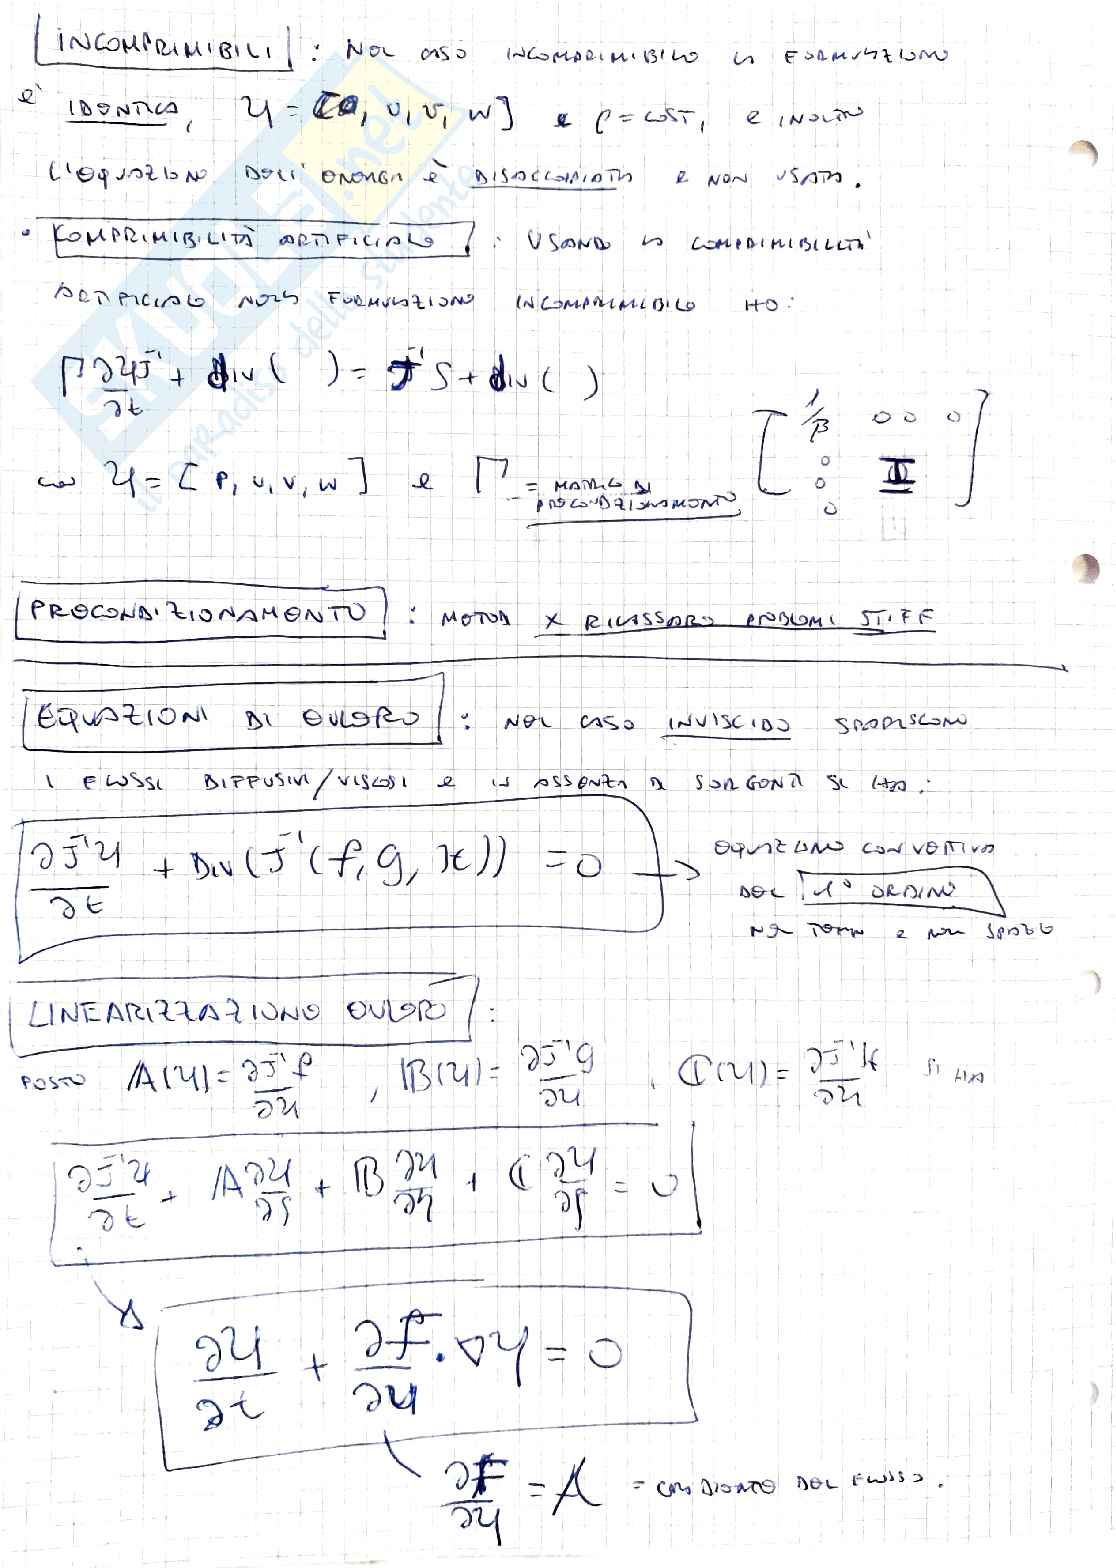 INCOMPRIMIBILI : NEL CASO INCOMPRIMIBILE LA FORMULAZIONE
È IDENTICA, U = [0, u, v, w] e ρ = COST, E INOLTRE
L'EQUAZIONE DELL'ENERGIA È DISACCOPPIATA E NON USATA.
• COMPRIMIBILITÀ ARTIFICIALE : USANDO LA COMPRIMIBILITÀ
ARTIFICIALE NELLA FORMULAZIONE INCOMPRIMIBILE HO:
Γ ∂UJ⁻¹/∂t + div( ) = J⁻¹S + div( )
con U = [P, u, v, w] e Γ = MATRICE DI PRECONDIZIONAMENTO [1/β 0 0 0 0 0 0 I]
PRECONDIZIONAMENTO : METODI X RILASSARE PROBLEMI STIFF
EQUAZIONI DI EULERO : NEL CASO INVISCIDO SPARISCONO
I FLUSSI DIFFUSIVI/VISCOSI E IN ASSENZA DI SORGENTI SI HA:
∂J⁻¹U/∂t + Div(J⁻¹(f, g, H)) = 0 → EQUAZIONE CONVETTIVA
DEL 1° ORDINE
NEL TEMPO E NELLO SPAZIO
LINEARIZZAZIONE EULERO :
POSTO A(U) = ∂J⁻¹f/∂U , B(U) = ∂J⁻¹g/∂U , C(U) = ∂J⁻¹H/∂U SI HA
∂J⁻¹U/∂t + A ∂U/∂ξ + B ∂U/∂η + C ∂U/∂ζ = 0
∂U/∂t + ∂f/∂U · ∇U = 0
∂F/∂U = A = GRADIENTE DEL FLUSSO.
SKUOLA.net
il paradiso dello studente